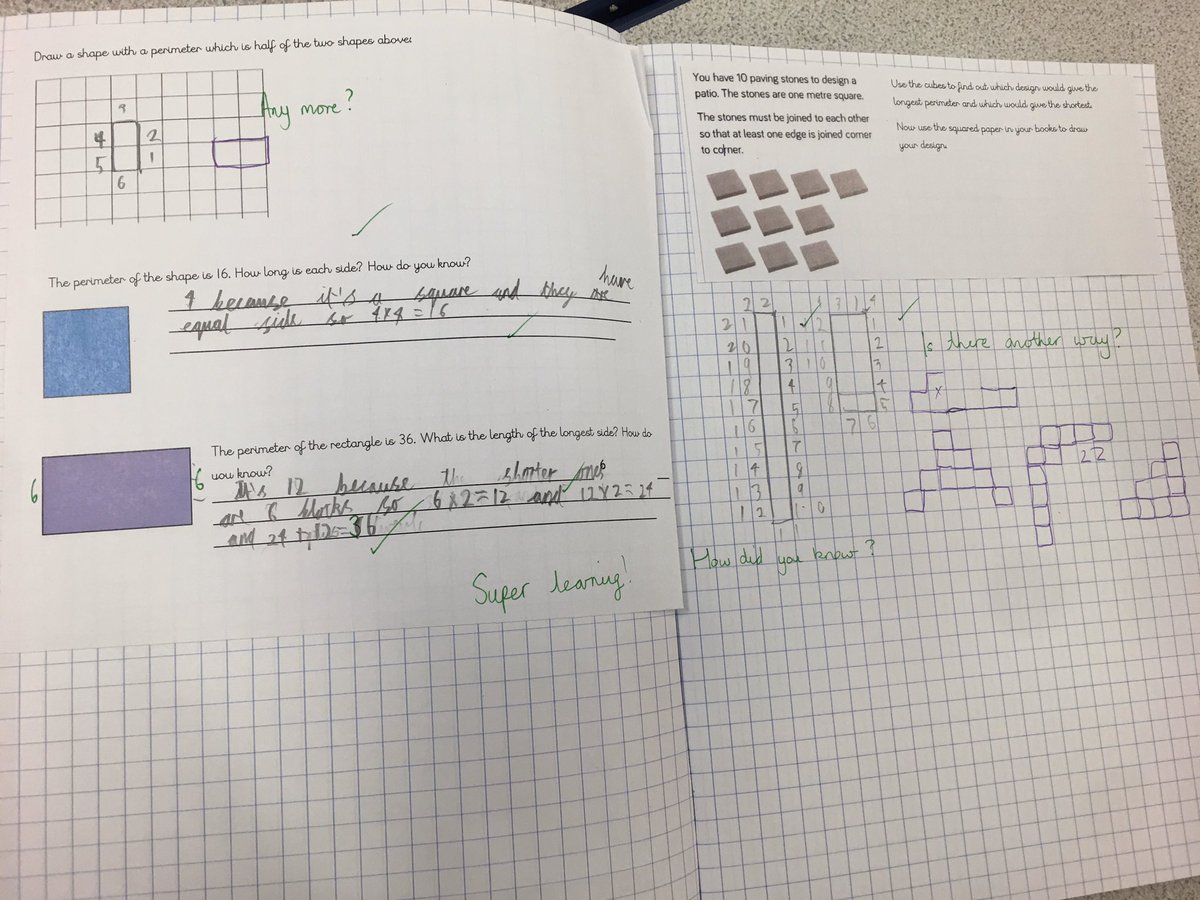 Draw a shape with a perimeter which is half of the two shapes above:
Any more?
3
4 2
5 1
6
The perimeter of the shape is 16. How long is each side? How do you know?
4 because it's a square and they have
equal side so 4x4=16
The perimeter of the rectangle is 36. What is the length of the longest side? How do
you know?
6 6
It's 12 because the shorter ones
are 6 blocks so 6x2=12 and 12x2=24
and 24 + 12=36
Super learning!
You have 10 paving stones to design a
patio. The stones are one metre square.
The stones must be joined to each other
so that at least one edge is joined corner
to corner.
Use the cubes to find out which design would give the
longest perimeter and which would give the shortest.
Now use the squared paper in your books to draw
your design.
22 13 14
21 1 12 1
20 2 11 2
19 3 10 3
18 4 9 4
17 5 8 5
16 6 7 6
15 7
14 8
13 9
12 10
11
Is there another way?
x
22
How did you know?